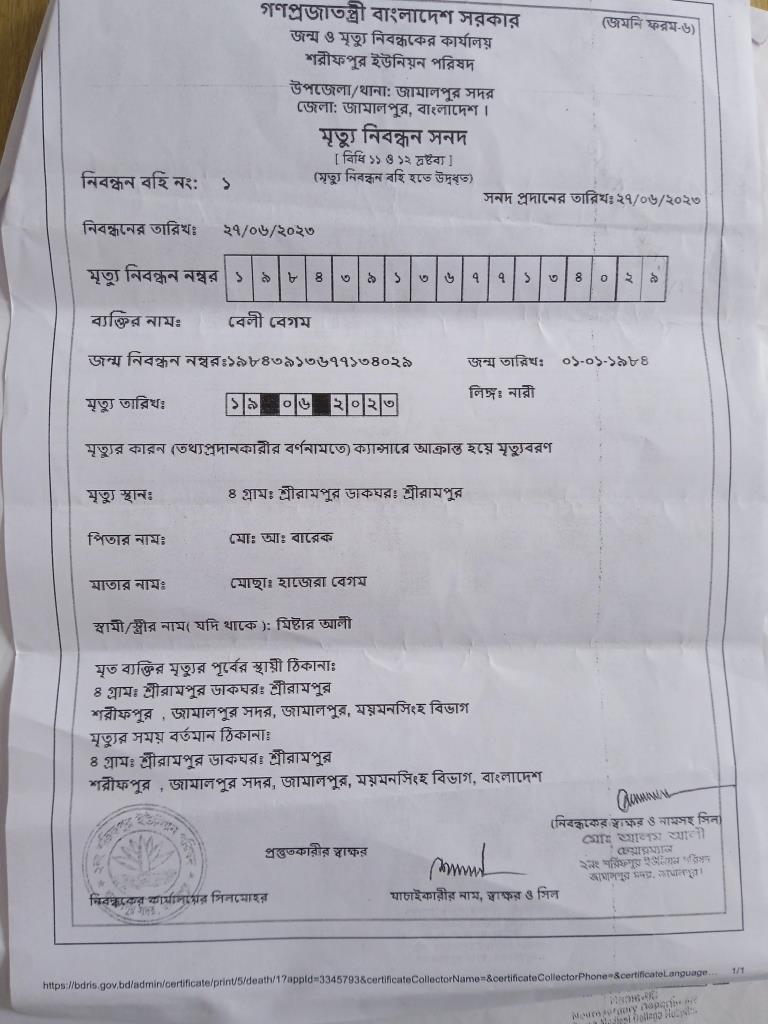 গণপ্রজাতন্ত্রী বাংলাদেশ সরকার
(জমনি ফরম-৬)
জন্ম ও মৃত্যু নিবন্ধকের কার্যালয়
শরীফপুর ইউনিয়ন পরিষদ
উপজেলা/থানা: জামালপুর সদর
জেলা: জামালপুর, বাংলাদেশ ।
মৃত্যু নিবন্ধন সনদ
[ বিধি ১১ ও ১২ দ্রষ্টব্য ]
(মৃত্যু নিবন্ধন বহি হতে উদ্ধৃত)
নিবন্ধন বহি নং: ১
সনদ প্রদানের তারিখঃ ২৭/০৬/২০২৩
নিবন্ধনের তারিখঃ ২৭/০৬/২০২৩
মৃত্যু নিবন্ধন নম্বর ১ ৯ ৮ ৪ ৩ ৯ ১ ৩ ৬ ৭ ৭ ১ ৩ ৪ ০ ২ ৯
ব্যক্তির নাম: বেলী বেগম
জন্ম নিবন্ধন নম্বর:১৯৮৪৩৯১৩৬৭৭১৩৪০২৯ জন্ম তারিখ: ০১-০১-১৯৮৪
মৃত্যু তারিখ: ১৯ ০৬ ২০২৩ লিঙ্গ: নারী
মৃত্যুর কারন (তথ্যপ্রদানকারীর বর্ণনামতে) ক্যান্সারে আক্রান্ত হয়ে মৃত্যুবরণ
মৃত্যু স্থান: ৪ গ্রাম: শ্রীরামপুর ডাকঘর: শ্রীরামপুর
পিতার নাম: মো: আ: বারেক
মাতার নাম: মোছা: হাজেরা বেগম
স্বামী/স্ত্রীর নাম( যদি থাকে ): মিষ্টার আলী
মৃত ব্যক্তির মৃত্যুর পূর্বের স্থায়ী ঠিকানা:
৪ গ্রাম: শ্রীরামপুর ডাকঘর: শ্রীরামপুর
শরীফপুর , জামালপুর সদর, জামালপুর, ময়মনসিংহ বিভাগ
মৃত্যুর সময় বর্তমান ঠিকানা:
৪ গ্রাম: শ্রীরামপুর ডাকঘর: শ্রীরামপুর
শরীফপুর , জামালপুর সদর, জামালপুর, ময়মনসিংহ বিভাগ, বাংলাদেশ
(নিবন্ধকের স্বাক্ষর ও নামসহ সিল)
মোঃ আলম আলী
চেয়ারম্যান
২নং শরিফপুর ইউনিয়ন পরিষদ
জামালপুর সদর, জামালপুর।
প্রস্তুতকারীর স্বাক্ষর
নিবন্ধকের কার্যালয়ের সিলমোহর
যাচাইকারীর নাম, স্বাক্ষর ও সিল
https://bdris.gov.bd/admin/certificate/print/5/death/1?appId=3345793&certificateCollectorName=&certificateCollectorPhone=&certificateLanguage... 1/1
Neurosurgery Department
Medical College Hospital